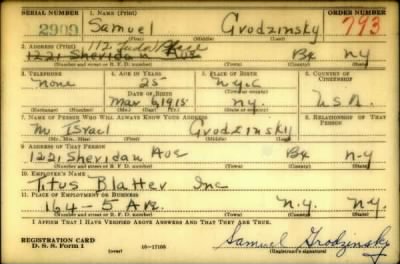 SERIAL NUMBER 1. NAME (Print) ORDER NUMBER
2909 Samuel Grodzinsky 793
(First) (Middle) (Last)
2. ADDRESS (Print) 112
1221 Sheridan Ave Bx NY
(Number and street or R. F. D. number) (Town) (County) (State)
3. TELEPHONE 4. AGE IN YEARS 5. PLACE OF BIRTH 6. COUNTRY OF CITIZENSHIP
None 25 NYC
DATE OF BIRTH
Mar 6 1915 NY. USA.
(Exchange) (Number) (Mo.) (Day) (Yr.) (State or country)
7. NAME OF PERSON WHO WILL ALWAYS KNOW YOUR ADDRESS 8. RELATIONSHIP OF THAT PERSON
M Israel Grodzinsky
(Mr., Mrs., Miss) (First) (Middle) (Last)
9. ADDRESS OF THAT PERSON
1221 Sheridan Ave Bx N-Y
(Number and street or R. F. D. number) (Town) (County) (State)
10. EMPLOYER'S NAME
Titus Blatter Inc
11. PLACE OF EMPLOYMENT OR BUSINESS
164-5 Av. N.Y. NY.
(Number and street or R. F. D. number) (Town) (County) (State)
I AFFIRM THAT I HAVE VERIFIED ABOVE ANSWERS AND THAT THEY ARE TRUE.
REGISTRATION CARD
D. S. S. Form 1 (over) 16-17105 Samuel Grodzinsky
(Registrant's signature)